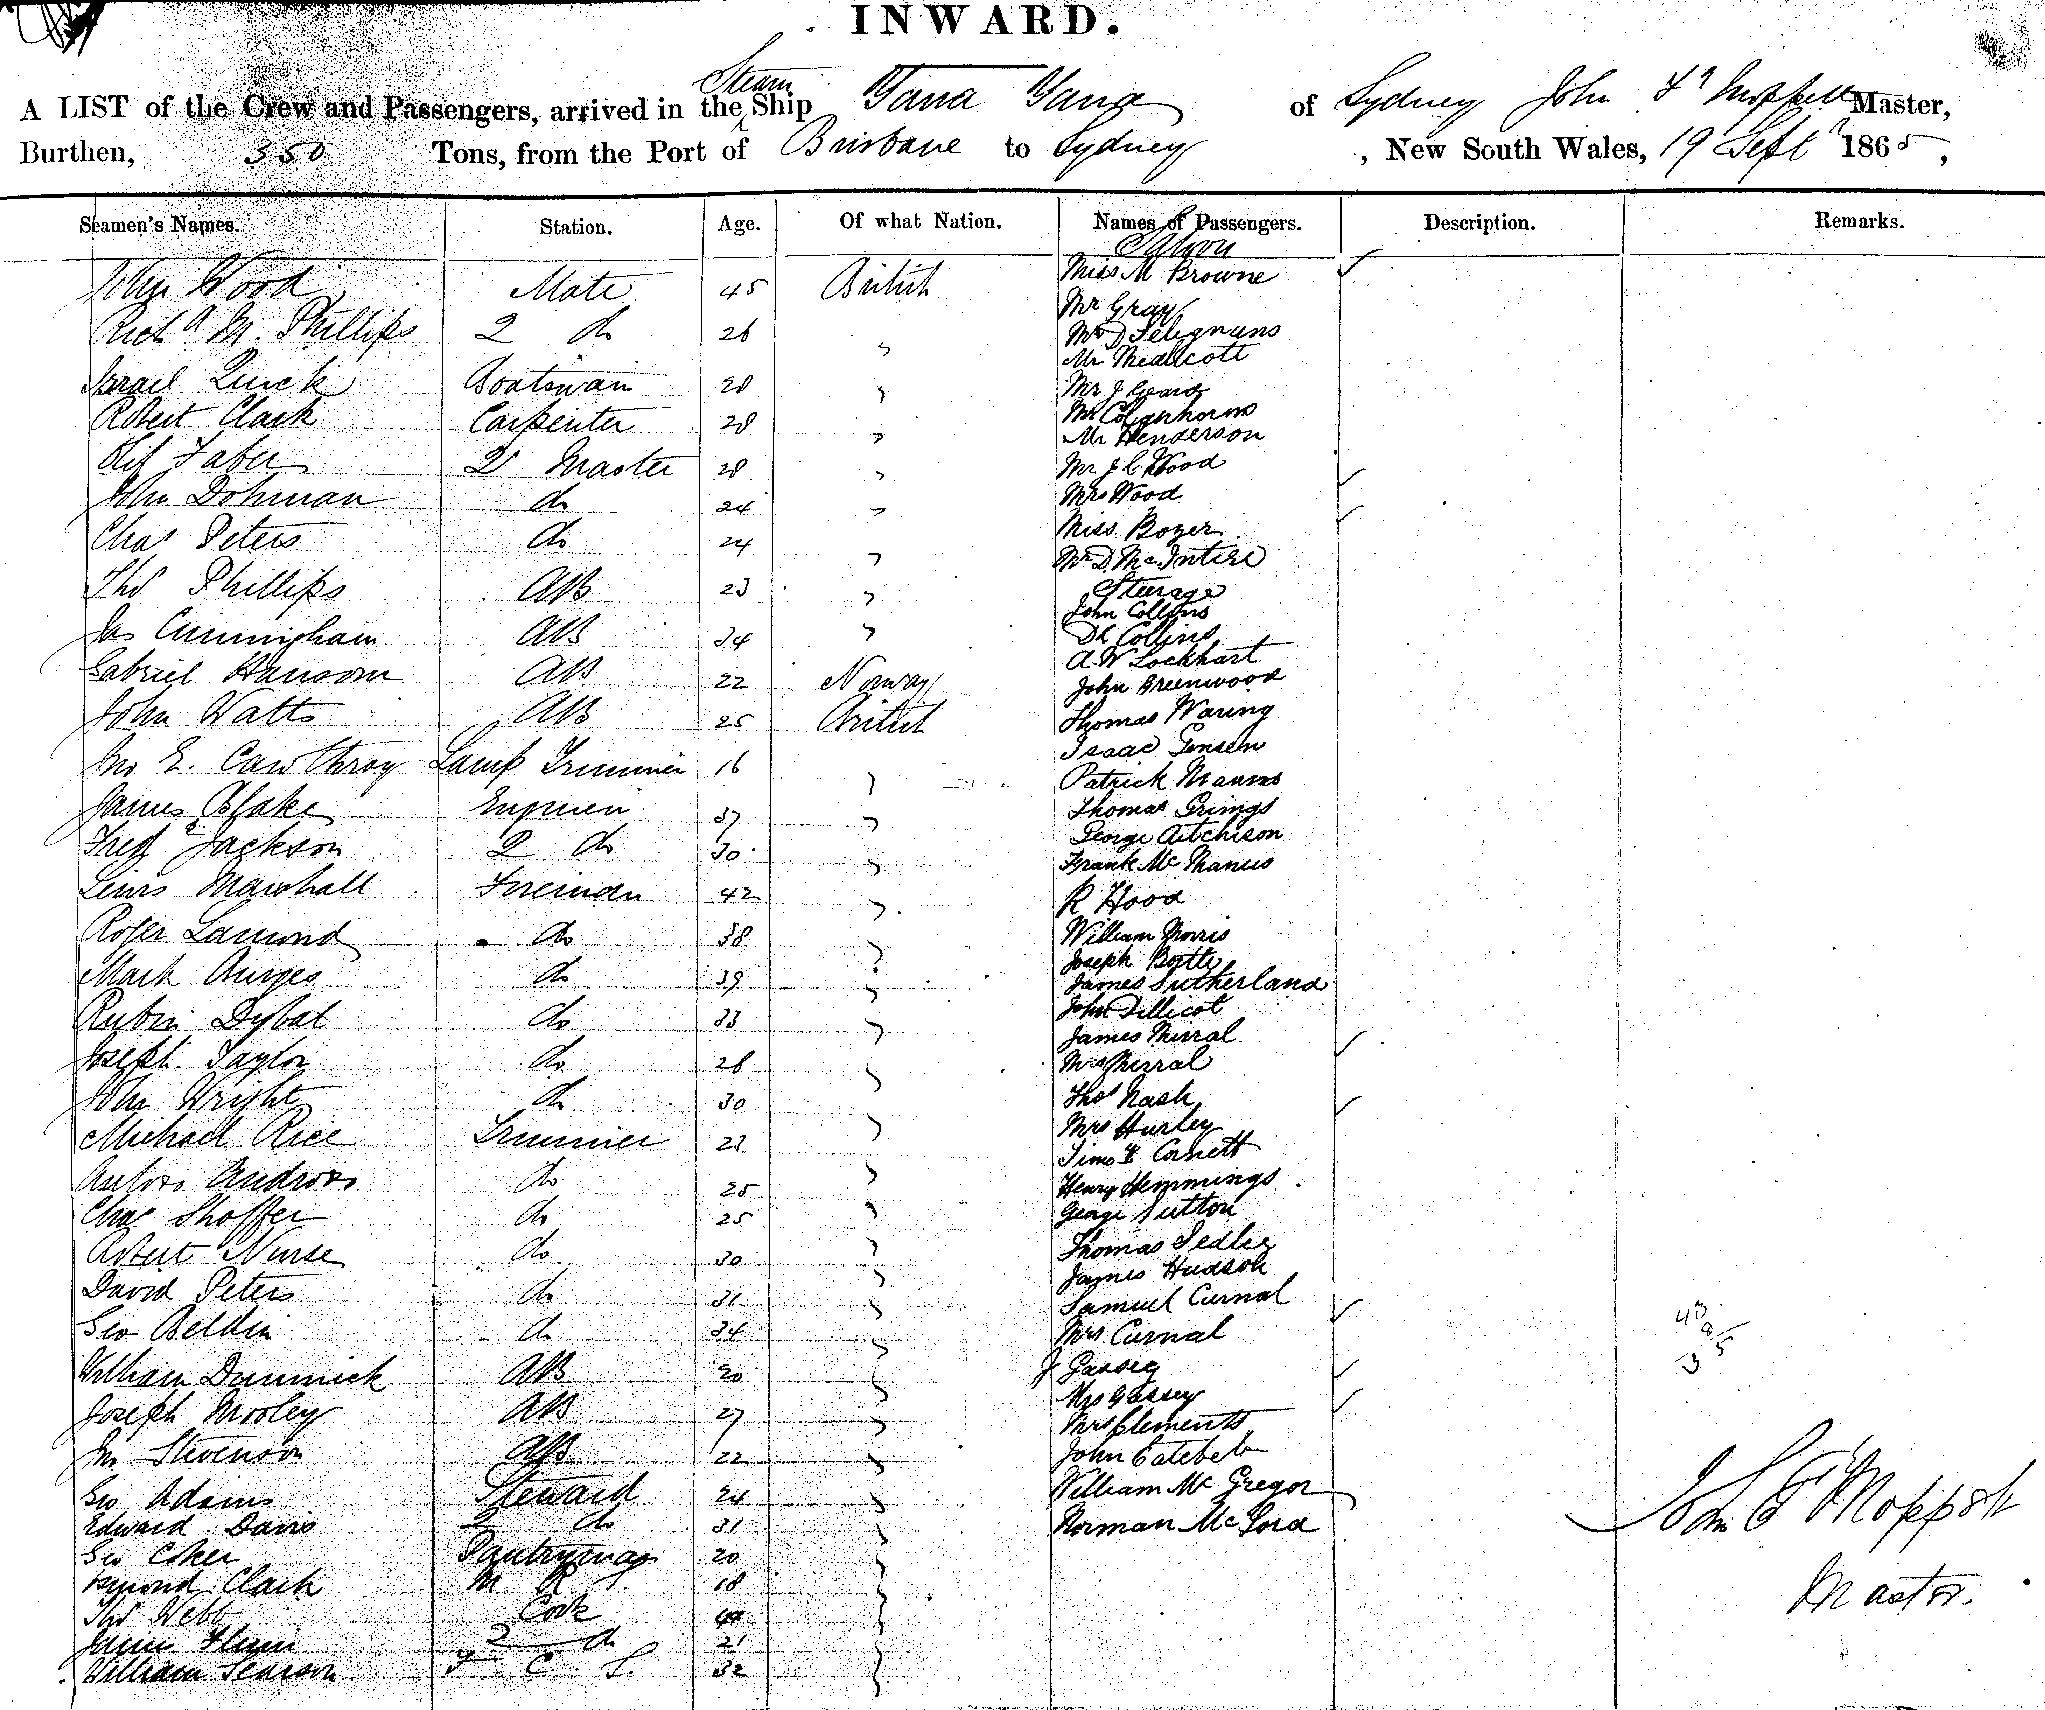 INWARD.
A LIST of the Crew and Passengers, arrived in the Steam Ship Yara Yara of Sydney John Master,
Burthen, 350 Tons, from the Port of Brisbane to Sydney, New South Wales, 19 Sept 1865,
Seamen's Names. Station. Age. Of what Nation. Names of Passengers. Description. Remarks.
Saloon
John Wood Mate 45 British Miss M Browne
Mr Gray
Richd M. Phillips 2 do 26 " Mr D
Mr Medlicott
Israel Quick Boatswain 28 " Mr J
Robert Clark Carpenter 28 " Mr
Mr Henderson
Faber 2 Master 28 " Mr J C Wood
John Dohman do 24 " Mrs Wood
Chas Peters do 24 " Miss Bozer
Mr D. McIntire
Thos Phillips AB 23 " Steerage
John Collins
Jas Cunningham AB 34 " Collins
A. W Lockhart
Gabriel Hansom AB 22 Norway John Greenwood
John Watts AB 25 British Thomas Waring
Isaac Jensen
Jno E. Cawthray Lamp Trimmer 16 " Patrick
James Blake 37 " Thomas Grings
Fred Jackson 2 do 30 " George Aitchison
Frank McManus
Lewis Marshall Fireman 42 " R Hood
Roger Lamond do 38 " William Morris
Joseph
Mark Burges do 39 " James Sutherland
Rubin Dybal do 33 " John Tillicot
James Mirral
Joseph Taylor do 28 " Mrs Mirral
John Wright do 30 " Thos Nash
Michael Rice Trimmer 23 " Mrs Hurley
Cornett
do 25 " Henry Hemmings
Chas Shoffer do 25 " George Sutton
Robert Nurse do 30 " Thomas Sedley
James Hudson
David Peters do 31 " Samuel Curnal
Geo Beldin do 34 " Mrs Curnal
William Dummick AB 20 " J Gassey
Mrs Gassey
Joseph Mooley AB 27 " Mrs Clements
Jno Stevenson AB 22 " John
Geo Adams Steward 24 " William McGregor
Edward Davis 2 do 31 " Norman McLord
Geo Coker Pantryman 20 "
Clark 18 "
Thos Webb Cook "
James 2 do 21 "
William Searson F C S. 32 "
Master.